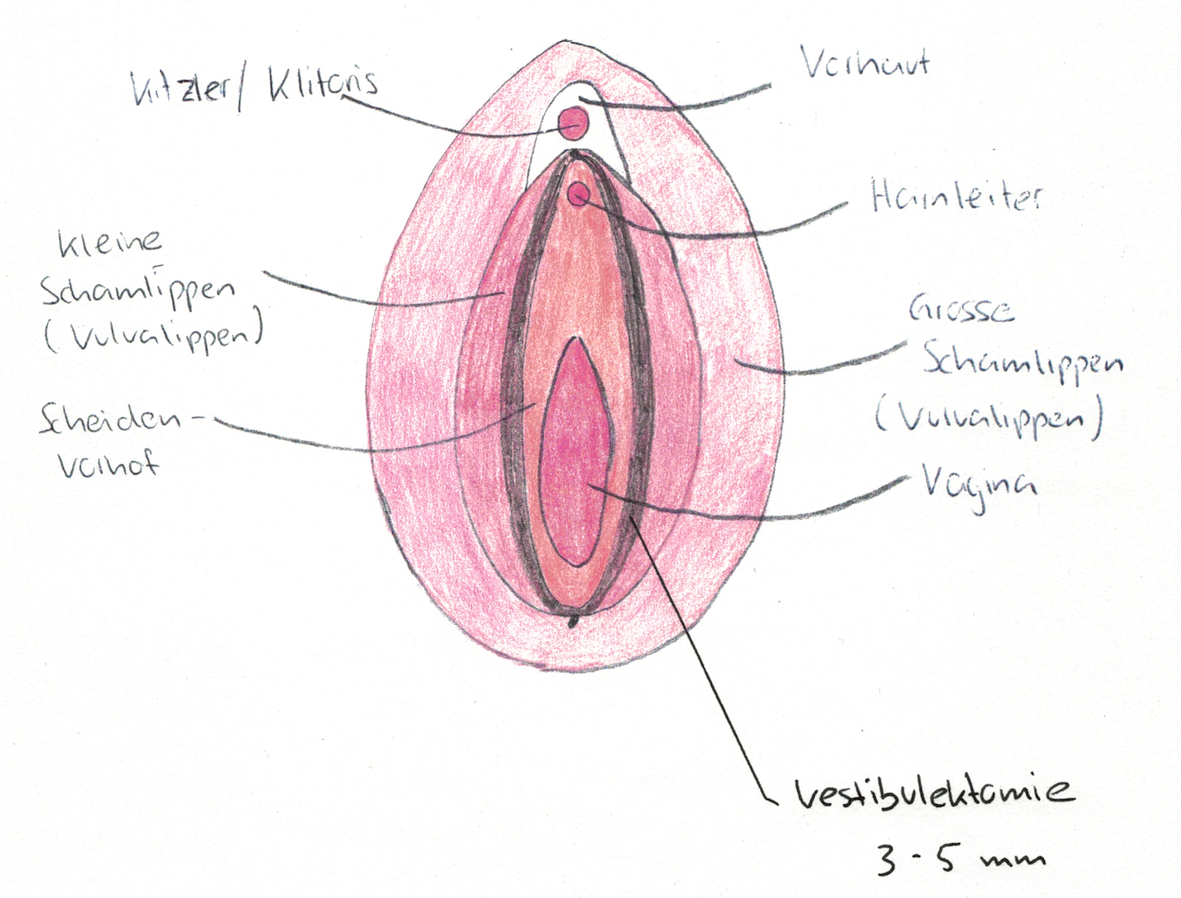 Kitzler/ Klitoris
Vorhaut
Harnleiter
kleine
Schamlippen
(Vulvalippen)
Grosse
Schamlippen
(Vulvalippen)
Scheiden-
vorhof
Vagina
Vestibulektomie
3-5 mm